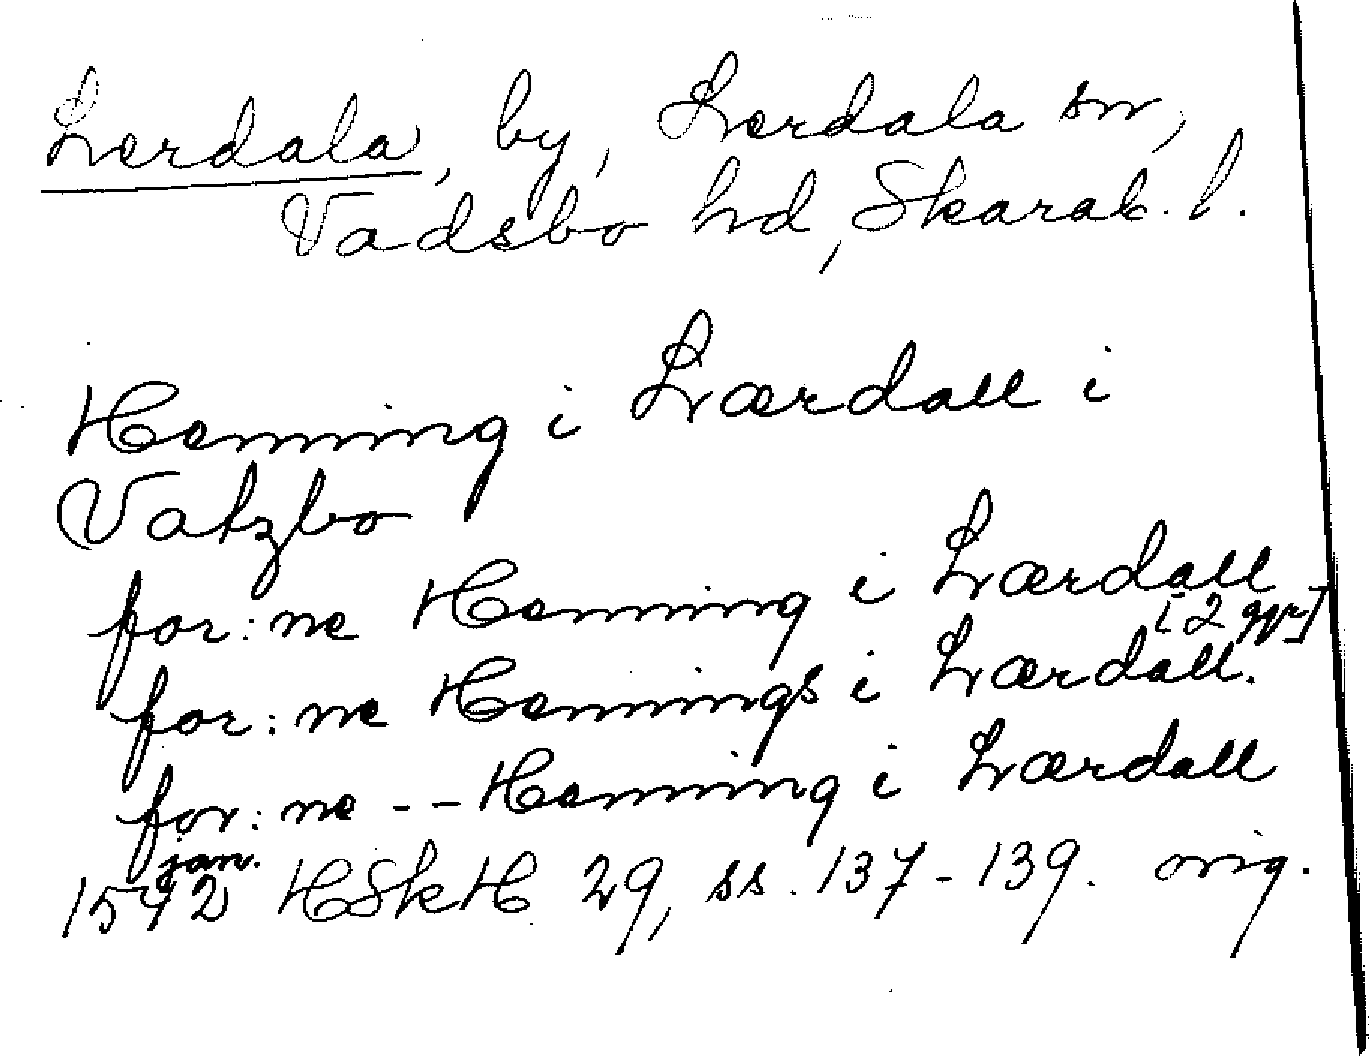 Lerdala, by, Lerdala sn,
Vadsbo hd, Skarab. l.
Henning i Lærdall i
Vatzbo
for:ne Henning i Lærdall
[2 ggr]
for:ne Hennings i Lærdall.
for:ne -- Henning i Lærdall
jan.
1542 HSkH 29, ss. 137-139. orig.